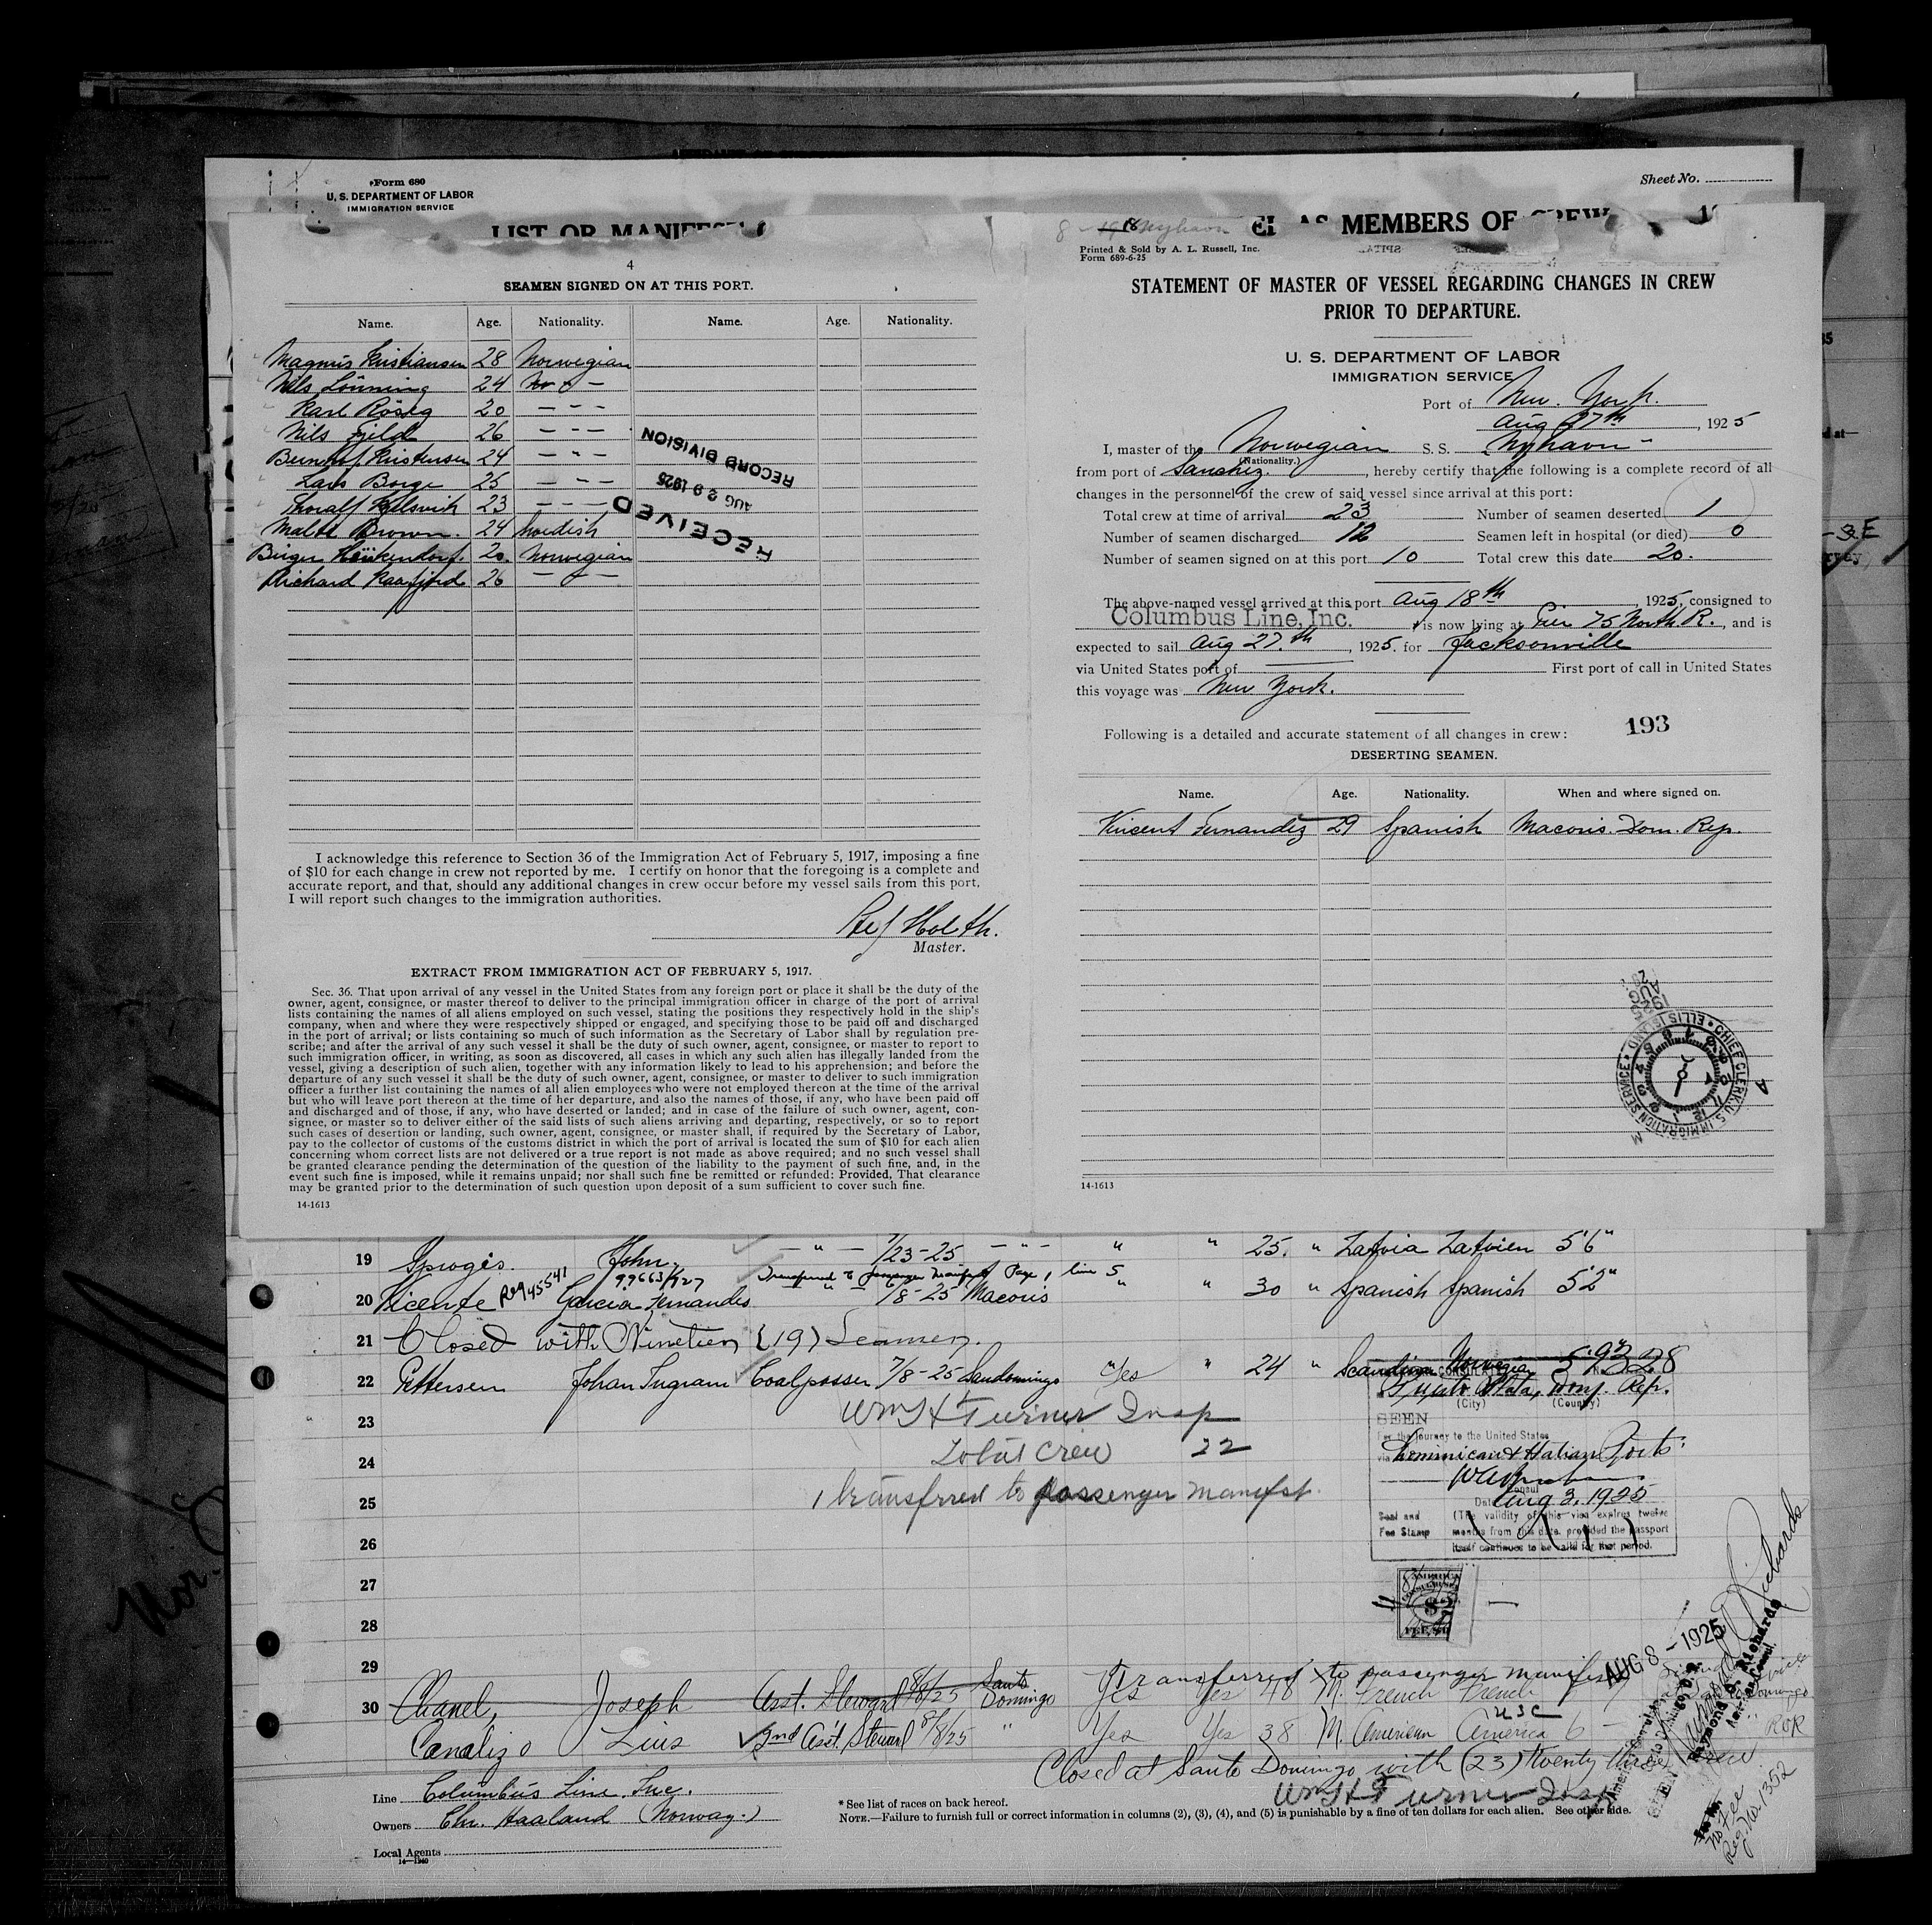 Form 680
U. S. DEPARTMENT OF LABOR
IMMIGRATION SERVICE
Sheet No.
LIST OR MANIFEST
AS MEMBERS OF CREW
4
SEAMEN SIGNED ON AT THIS PORT.
Name. Age. Nationality. Name. Age. Nationality.
Magnus Kristiansen 28 Norwegian
Nils Lönning 24
Karl 20 - - -
Nils Fjeld 26 - - -
Kristensen 24 - " -
Lars Borge 25 - - -
23 - - -
Malte Brown. 24 Swedish
Birger 20. Norwegian
Richard 26
RECEIVED
AUG 29 1925
RECORD DIVISION
I acknowledge this reference to Section 36 of the Immigration Act of February 5, 1917, imposing a fine
of $10 for each change in crew not reported by me. I certify on honor that the foregoing is a complete and
accurate report, and that, should any additional changes in crew occur before my vessel sails from this port,
I will report such changes to the immigration authorities.
Holth.
Master.
EXTRACT FROM IMMIGRATION ACT OF FEBRUARY 5, 1917.
Sec. 36. That upon arrival of any vessel in the United States from any foreign port or place it shall be the duty of the
owner, agent, consignee, or master thereof to deliver to the principal immigration officer in charge of the port of arrival
lists containing the names of all aliens employed on such vessel, stating the positions they respectively hold in the ship's
company, when and where they were respectively shipped or engaged, and specifying those to be paid off and discharged
in the port of arrival; or lists containing so much of such information as the Secretary of Labor shall by regulation pre-
scribe; and after the arrival of any such vessel it shall be the duty of such owner, agent, consignee, or master to report to
such immigration officer, in writing, as soon as discovered, all cases in which any such alien has illegally landed from the
vessel, giving a description of such alien, together with any information likely to lead to his apprehension; and before the
departure of any such vessel it shall be the duty of such owner, agent, consignee, or master to deliver to such immigration
officer a further list containing the names of all alien employees who were not employed thereon at the time of the arrival
but who will leave port thereon at the time of her departure, and also the names of those, if any, who have been paid off
and discharged and of those, if any, who have deserted or landed; and in case of the failure of such owner, agent, con-
signee, or master so to deliver either of the said lists of such aliens arriving and departing, respectively, or so to report
such cases of desertion or landing, such owner, agent, consignee, or master shall, if required by the Secretary of Labor,
pay to the collector of customs of the customs district in which the port of arrival is located the sum of $10 for each alien
concerning whom correct lists are not delivered or a true report is not made as above required; and no such vessel shall
be granted clearance pending the determination of the question of the liability to the payment of such fine, and, in the
event such fine is imposed, while it remains unpaid; nor shall such fine be remitted or refunded: Provided, That clearance
may be granted prior to the determination of such question upon deposit of a sum sufficient to cover such fine.
14-1613
18 Nyhavn
Printed & Sold by A. L. Russell, Inc.
Form 689-6-25
STATEMENT OF MASTER OF VESSEL REGARDING CHANGES IN CREW
PRIOR TO DEPARTURE.
U. S. DEPARTMENT OF LABOR
IMMIGRATION SERVICE
Port of New York.
Aug 27th, 1925
I, master of the Norwegian S. S. Nyhavn -
(Nationality.)
from port of Sanchez, hereby certify that the following is a complete record of all
changes in the personnel of the crew of said vessel since arrival at this port:
Total crew at time of arrival 23 Number of seamen deserted 1
Number of seamen discharged 12 Seamen left in hospital (or died) 0
Number of seamen signed on at this port 10 Total crew this date 20.
The above-named vessel arrived at this port Aug 18th, 1925, consigned to
Columbus Line, Inc. is now lying at Pier 75 North R., and is
expected to sail Aug 27.th, 1925. for Jacksonville
via United States port of First port of call in United States
this voyage was New York.
193
Following is a detailed and accurate statement of all changes in crew:
DESERTING SEAMEN.
Name. Age. Nationality. When and where signed on.
Vincent Fernandez 29 Spanish Macoris. Dom. Rep.
AUG 1925
CHIEF CLERK, U. S. IMMIGRATION SERVICE • ELLIS ISLAND
14-1613
19 Sprogis. John. - " - 7/23-25 - " - " " 25. " Latvia Latvien 5'6"
99663/927 Transferred to Passenger Manifest Page 1 line 5
20 Vicente Reg 45541 Garcia Fernandes 7/8-25 Macoris " " 30 " Spanish Spanish 5'2"
21 Closed with Nineteen (19) Seamen.
22 Pettersen Johan Ingram Coalpasser 7/8-25 Sandomingo Yes " 24 " Scandina Norwegia
23 Wm H Turner Insp
24 Total Crew 22
25 1 transferred to passenger manifest.
26
27
28
29
Puerto Plata, Dom. Rep.
(City) (Country)
SEEN
For the journey to the United States
via Dominican & Haitian Ports
Consul
Date Aug 3, 1925
Seal and Fee Stamp
(The validity of this visa expires twelve
months from this date, provided the passport
itself continues to be valid for that period.
Transferred to passenger manifest
30 Chanel, Joseph Asst. Steward 8/8/25 Santo Domingo Yes Yes 48 M. French French
USC
Canalizo Luis 2nd Ass't. Steward 8/8/25 " Yes Yes 38 M. American America 6 -
Closed at Santo Domingo with (23) twenty three crew
Wm H Turner Insp
AUG 8 - 1925
SEEN
Raymond D. Richards
American Consul.
No Fee
Reg. No. 1352
Line Columbus Line, Inc.
Owners Chr. Haaland (Norway.)
Local Agents
14-1240
* See list of races on back hereof.
NOTE.—Failure to furnish full or correct information in columns (2), (3), (4), and (5) is punishable by a fine of ten dollars for each alien. See other side.